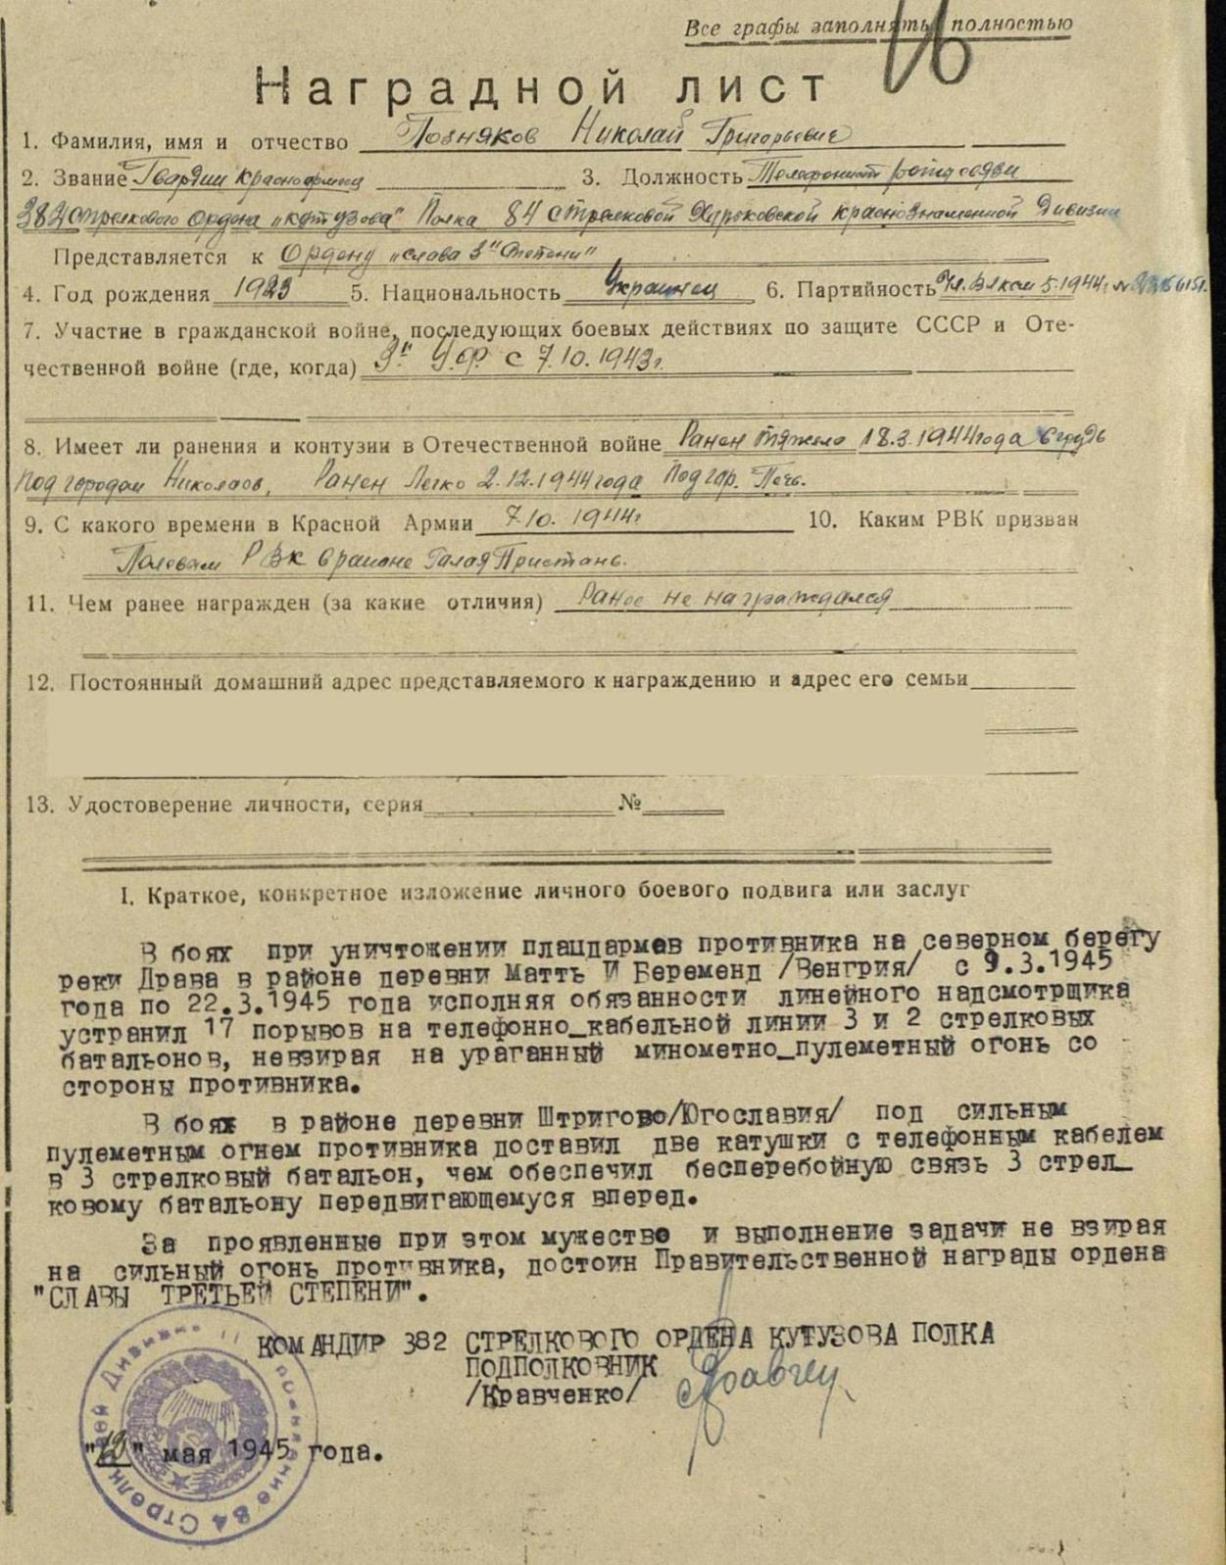 Все графы заполнять полностью
16
Наградной лист
1. Фамилия, имя и отчество Позняков Николай Григорьевич
2. Звание Гвардии красноармеец 3. Должность Телефонист роты связи
382 стрелкового ордена "Кутузова" Полка 84 стрелковой Харьковской краснознаменной Дивизии
Представляется к Ордену "Слава 3й Степени"
4. Год рождения 1923 5. Национальность Украинец 6. Партийность Чл. ВЛКСМ 5.1944г. №
7. Участие в гражданской войне, последующих боевых действиях по защите СССР и Оте-
чественной войне (где, когда) 3й У.Ф. с 7.10.1943г.
8. Имеет ли ранения и контузии в Отечественной войне Ранен тяжело 18.3.1944 года в грудь
под городом Николаев, Ранен Легко 2.12.1944 года под гор. Печь.
9. С какого времени в Красной Армии 7.10.1944г 10. Каким РВК призван
Полевым РВК в районе Голая Пристань.
11. Чем ранее награжден (за какие отличия) Ранее не награждался
12. Постоянный домашний адрес представляемого к награждению и адрес его семьи
13. Удостоверение личности, серия №
I. Краткое, конкретное изложение личного боевого подвига или заслуг
В боях при уничтожении плацдармав противника на северном берегу
реки Драва в районе деревни Матть И Беременд /Венгрия/ с 9.3.1945
года по 22.3.1945 года исполняя обязанности линейного надсмотрщика
устранил 17 порывов на телефонно_кабельной линии 3 и 2 стрелковых
батальонов, невзирая на ураганный минометно_пулеметный огонь со
стороны противника.
В боях в районе деревни Штригово/Югославия/ под сильным
пулеметным огнем противника доставил две катушки с телефонным кабелем
в 3 стрелковый батальон, чем обеспечил бесперебойную связь 3 стрел_
ковому батальону передвигающемуся вперед.
За проявленные при этом мужество и выполнение задачи не взирая
на сильный огонь противника, достоин Правительственной награды ордена
"СЛАВЫ ТРЕТЬЕЙ СТЕПЕНИ".
КОМАНДИР 382 СТРЕЛКОВОГО ОРДЕНА КУТУЗОВА ПОЛКА
ПОДПОЛКОВНИК
/Кравченко/
"12" мая 1945 года.
84 Стрелковой Дивизии